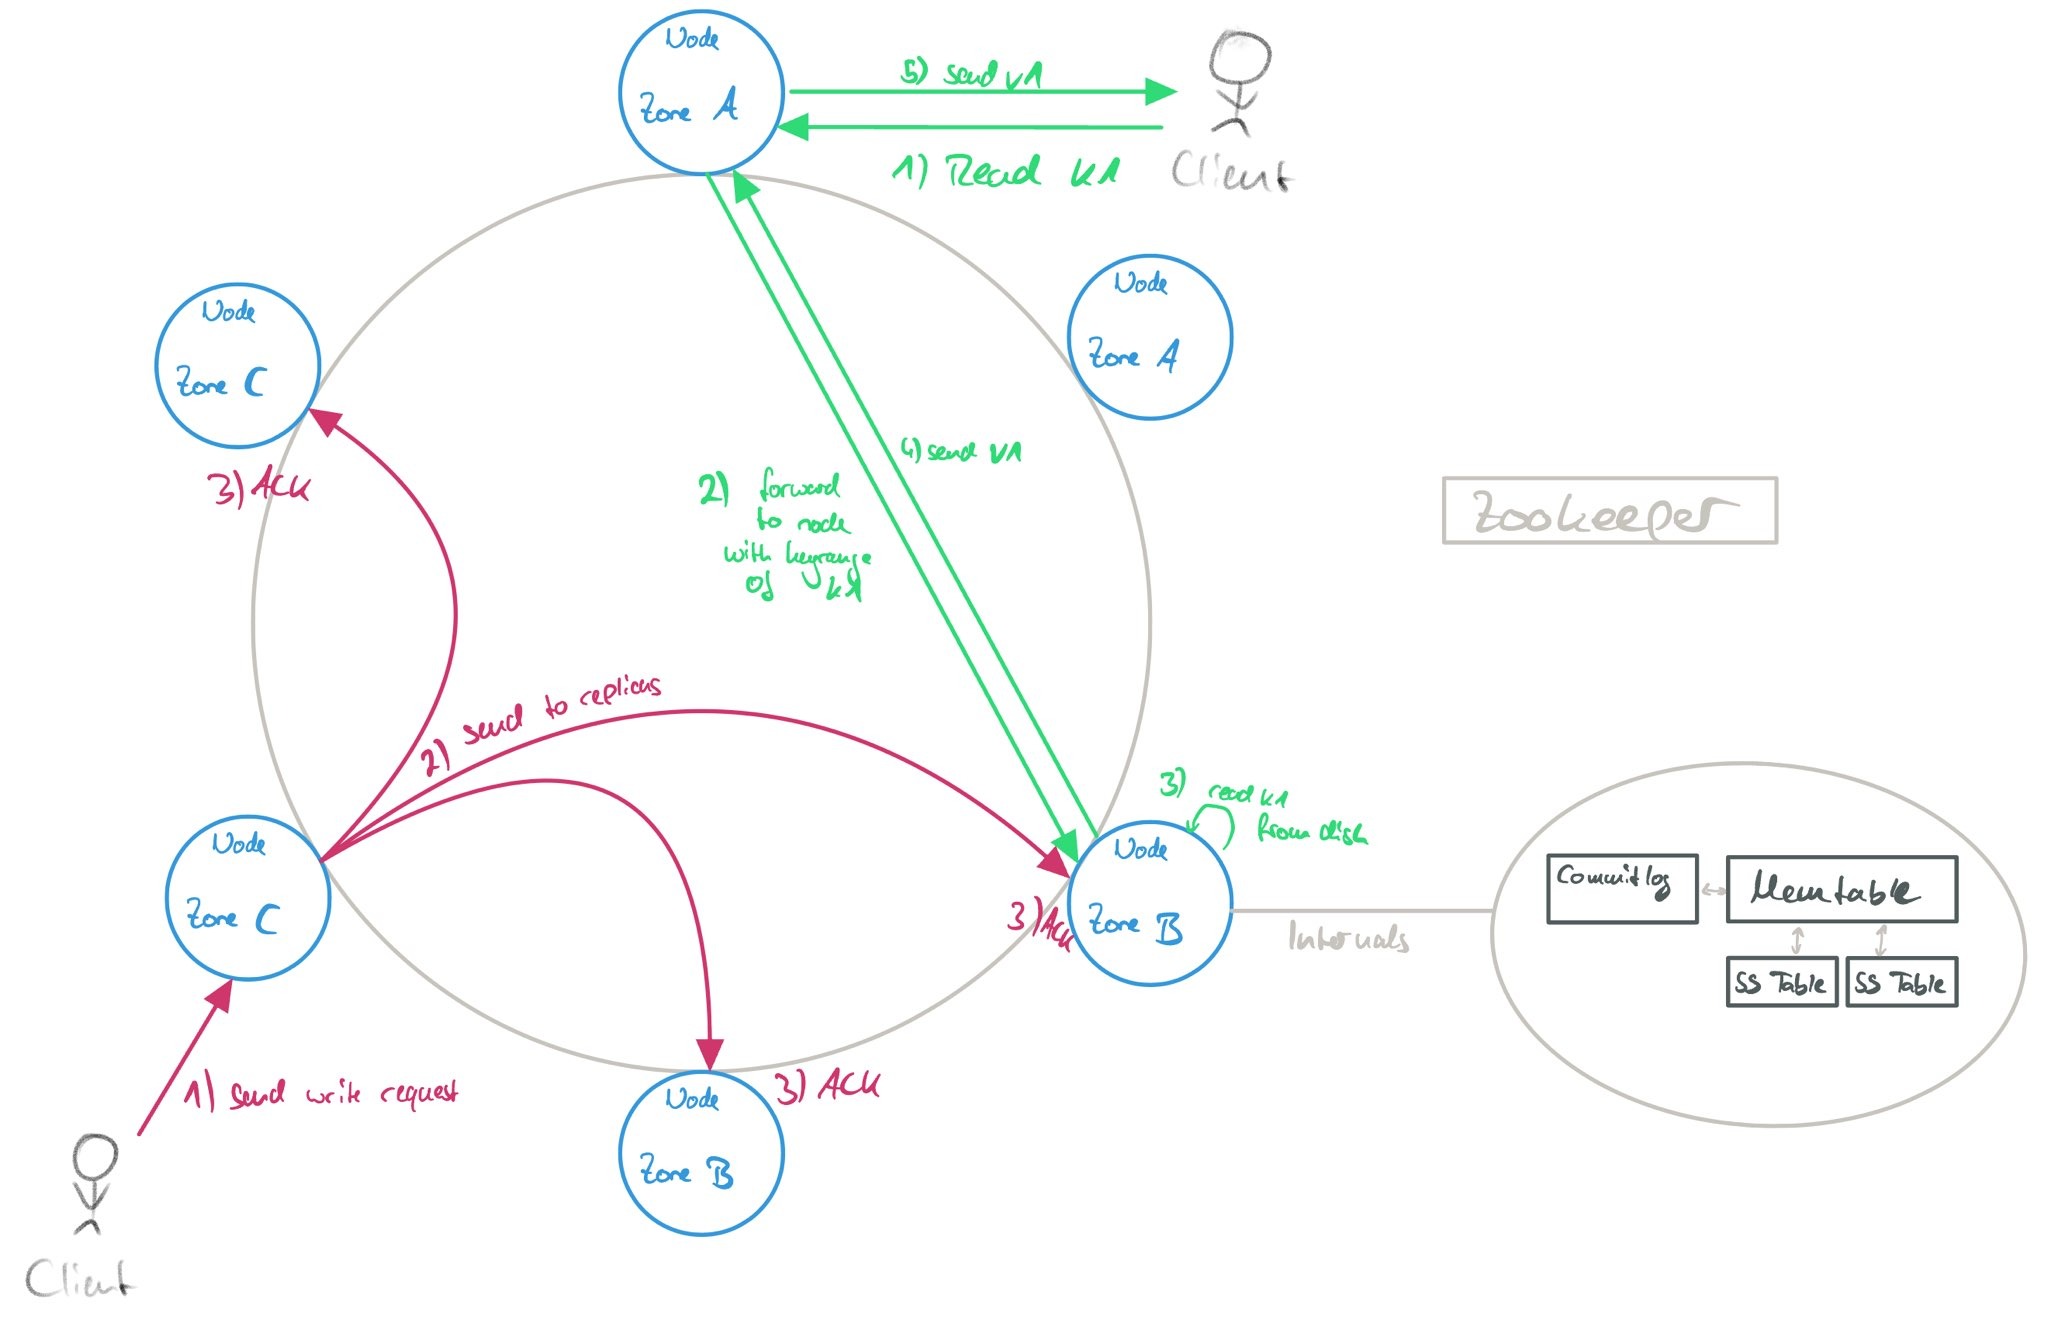 Node
Zone A
5) send v1
1) Read k1
Client
Node
Zone A
Node
Zone C
3) ACK
4) send v1
2) forward
to node
with keyrange
of k1
Zookeeper
2) send to replicas
3) read k1
from disk
Node
Zone B
3) Ack
Internals
Commitlog
Memtable
SS Table
SS Table
Node
Zone C
1) send write request
Node
Zone B
3) ACK
Client